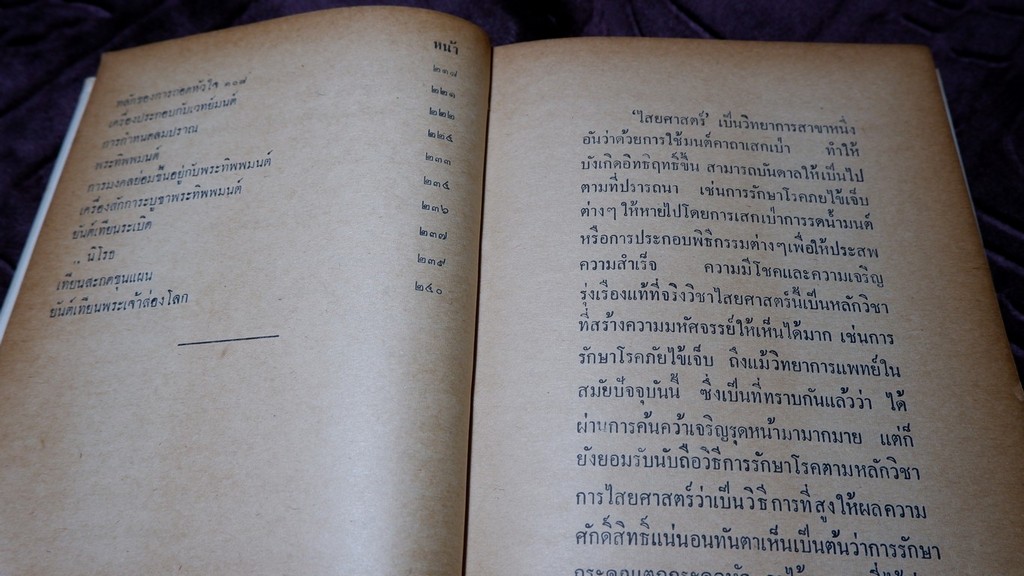 หน้า
หลักของการถอดหัวใจ ๑๐๘ ๒๑๗
เครื่องประกอบกับเวทย์มนต์ ๒๒๑
การกำหนดลมปราณ ๒๒๒
พระทิพพมนต์ ๒๒๕
การมงคลย่อมขึ้นอยู่กับพระทิพพมนต์ ๒๓๓
เครื่องสักการะบูชาพระทิพพมนต์ ๒๓๕
ยันต์เทียนระเบิด ๒๓๖
,, นิโรธ ๒๓๗
เทียนสะกดขุนแผน ๒๓๙
ยันต์เทียนพระเจ้าส่องโลก ๒๔๐
‘ไสยศาสตร์’ เป็นวิทยาการสาขาหนึ่ง
อันว่าด้วยการใช้มนต์คาถาเสกเป่า ทำให้
บังเกิดอิทธิฤทธิ์ขึ้น สามารถบันดาลให้เป็นไป
ตามที่ปรารถนา เช่นการรักษาโรคภยไข้เจ็บ
ต่างๆ ให้หายไปโดยการเสกเป่าการรดน้ำมนต์
หรือการประกอบพิธีกรรมต่างๆเพื่อให้ประสพ
ความสำเร็จ ความมีโชคและความเจริญ
รุ่งเรืองแท้ที่จริงวิชาไสยศาสตร์นี้เป็นหลักวิชา
ที่สร้างความมหัศจรรย์ให้เห็นได้มาก เช่นการ
รักษาโรคภัยไข้เจ็บ ถึงแม้วิทยาการแพทย์ใน
สมัยปัจจุบันนี้ ซึ่งเป็นที่ทราบกันแล้วว่า ได้
ผ่านการค้นคว้าเจริญรุดหน้ามามากมาย แต่ก็
ยังยอมรับนับถือวิธีการรักษาโรคตามหลักวิชา
การไสยศาสตร์ว่าเป็นวิธีการที่สูงให้ผลความ
ศักดิ์สิทธิ์แน่นอนทันตาเห็นเป็นต้นว่าการรักษา